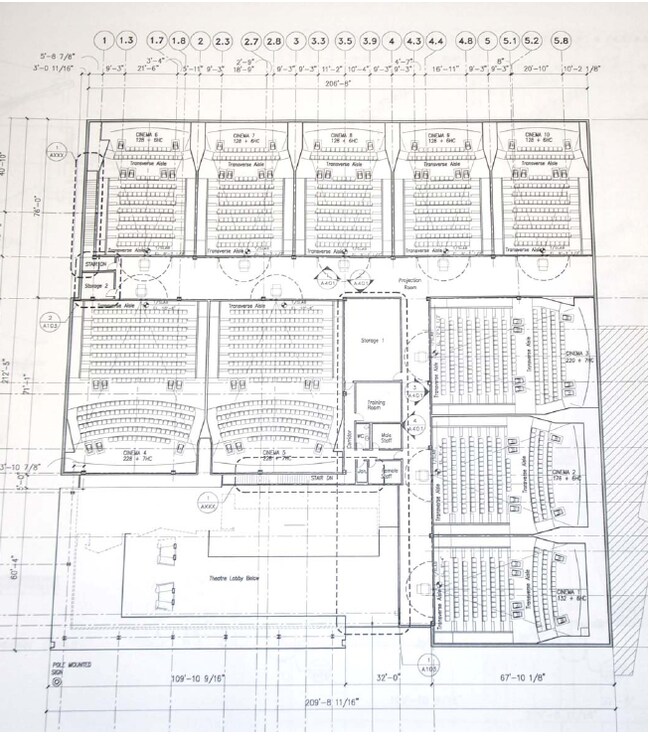 1 1.3 1.7 1.8 2 2.3 2.7 2.8 3 3.3 3.5 3.9 4 4.3 4.4 4.8 5 5.1 5.2 5.8
5'-8 7/8" 3'-4" 2'-9" 4'-7" 8"
3'-0 11/16" 9'-3" 21'-6" 5'-11" 9'-3" 18'-9" 9'-3" 9'-3" 11'-2" 10'-4" 9'-3" 9'-3" 16'-11" 9'-3" 9'-3" 20'-10" 10'-2 1/8"
206'-8"
CINEMA 6 CINEMA 7 CINEMA 8 CINEMA 9 CINEMA 10
128 + 6HC 128 + 6HC 128 + 6HC 128 + 6HC 128 + 6HC
Transverse Aisle Transverse Aisle Transverse Aisle Transverse Aisle Transverse Aisle
1
AXXX
76'-0"
Transverse Aisle Transverse Aisle Transverse Aisle Transverse Aisle Transverse Aisle
STAIR DN
Storage 2
Projection
Room
A401 A401
2
A103
Transverse Aisle Transverse Aisle
Storage 1
Transverse Aisle
CINEMA 3
220 + 7HC
212'-5"
71'-1"
A401
Training
Room
A401
Corridor
Male
Staff
CINEMA 4 CINEMA 5
228 + 7HC 228 + 7HC
3'-10 7/8"
STAIR DN
Female
Staff
Transverse Aisle
CINEMA 2
174 + 6HC
5'-0"
1
AXXX
60'-4"
Theatre Lobby Below
Transverse Aisle
CINEMA
132 + 6HC
POLE MOUNTED
SIGN
1
A103
109'-10 9/16" 32'-0" 67'-10 1/8"
209'-8 11/16"